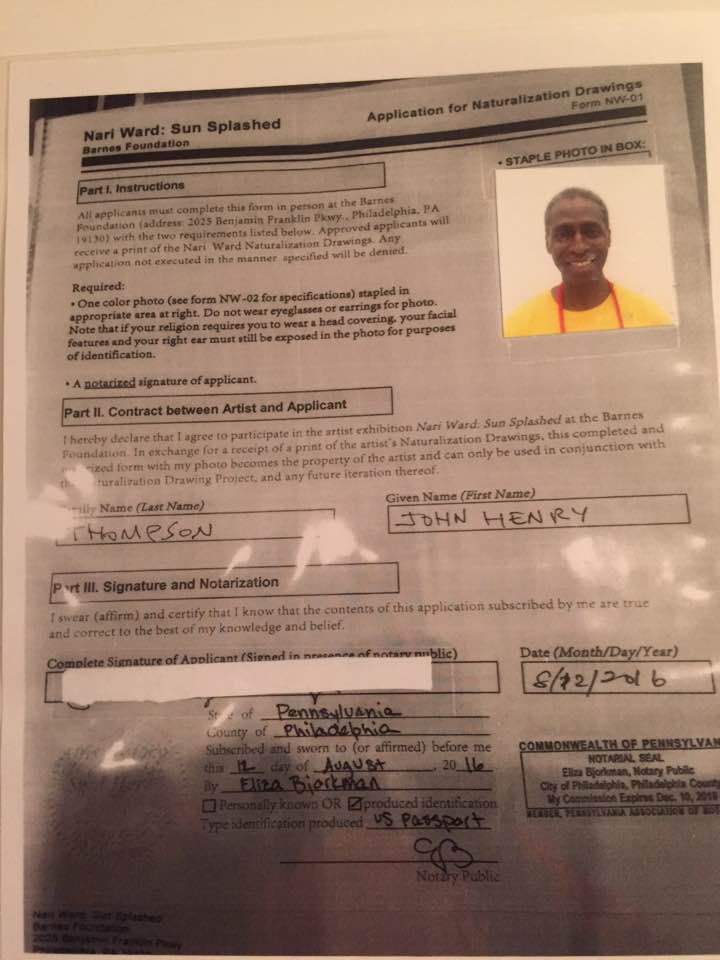 Nari Ward: Sun Splashed
Barnes Foundation
Application for Naturalization Drawings
Form NW-01
• STAPLE PHOTO IN BOX:
Part I. Instructions
All applicants must complete this form in person at the Barnes
Foundation (address: 2025 Benjamin Franklin Pkwy., Philadelphia, PA
19130) with the two requirements listed below. Approved applicants will
receive a print of the Nari Ward Naturalization Drawings. Any
application not executed in the manner specified will be denied.
Required:
• One color photo (see form NW-02 for specifications) stapled in
appropriate area at right. Do not wear eyeglasses or earrings for photo.
Note that if your religion requires you to wear a head covering, your facial
features and your right ear must still be exposed in the photo for purposes
of identification.
• A notarized signature of applicant.
Part II. Contract between Artist and Applicant
I hereby declare that I agree to participate in the artist exhibition Nari Ward: Sun Splashed at the Barnes
Foundation. In exchange for a receipt of a print of the artist's Naturalization Drawings, this completed and
form with my photo becomes the property of the artist and can only be used in conjunction with
Drawing Project, and any future iteration thereof.
Name (Last Name)
THOMPSON
Given Name (First Name)
JOHN HENRY
Part III. Signature and Notarization
I swear (affirm) and certify that I know that the contents of this application subscribed by me are true
and correct to the best of my knowledge and belief.
Complete Signature of Applicant (Signed in presence of notary public)
Date (Month/Day/Year)
8/12/2016
State of Pennsylvania
County of Philadelphia
Subscribed and sworn to (or affirmed) before me
this 12 day of AUGUST, 20 16
By Eliza Bjorkman
Personally known OR produced identification
Type identification produced US Passport
Notary Public
COMMONWEALTH OF PENNSYLVAN
NOTARIAL SEAL
Eliza Bjorkman, Notary Public
City of Philadelphia, Philadelphia County
My Commission Expires Dec. 10, 2019
MEMBER, PENNSYLVANIA ASSOCIATION OF
Nari Ward: Sun Splashed
Barnes Foundation
2025 Benjamin Franklin Pkwy